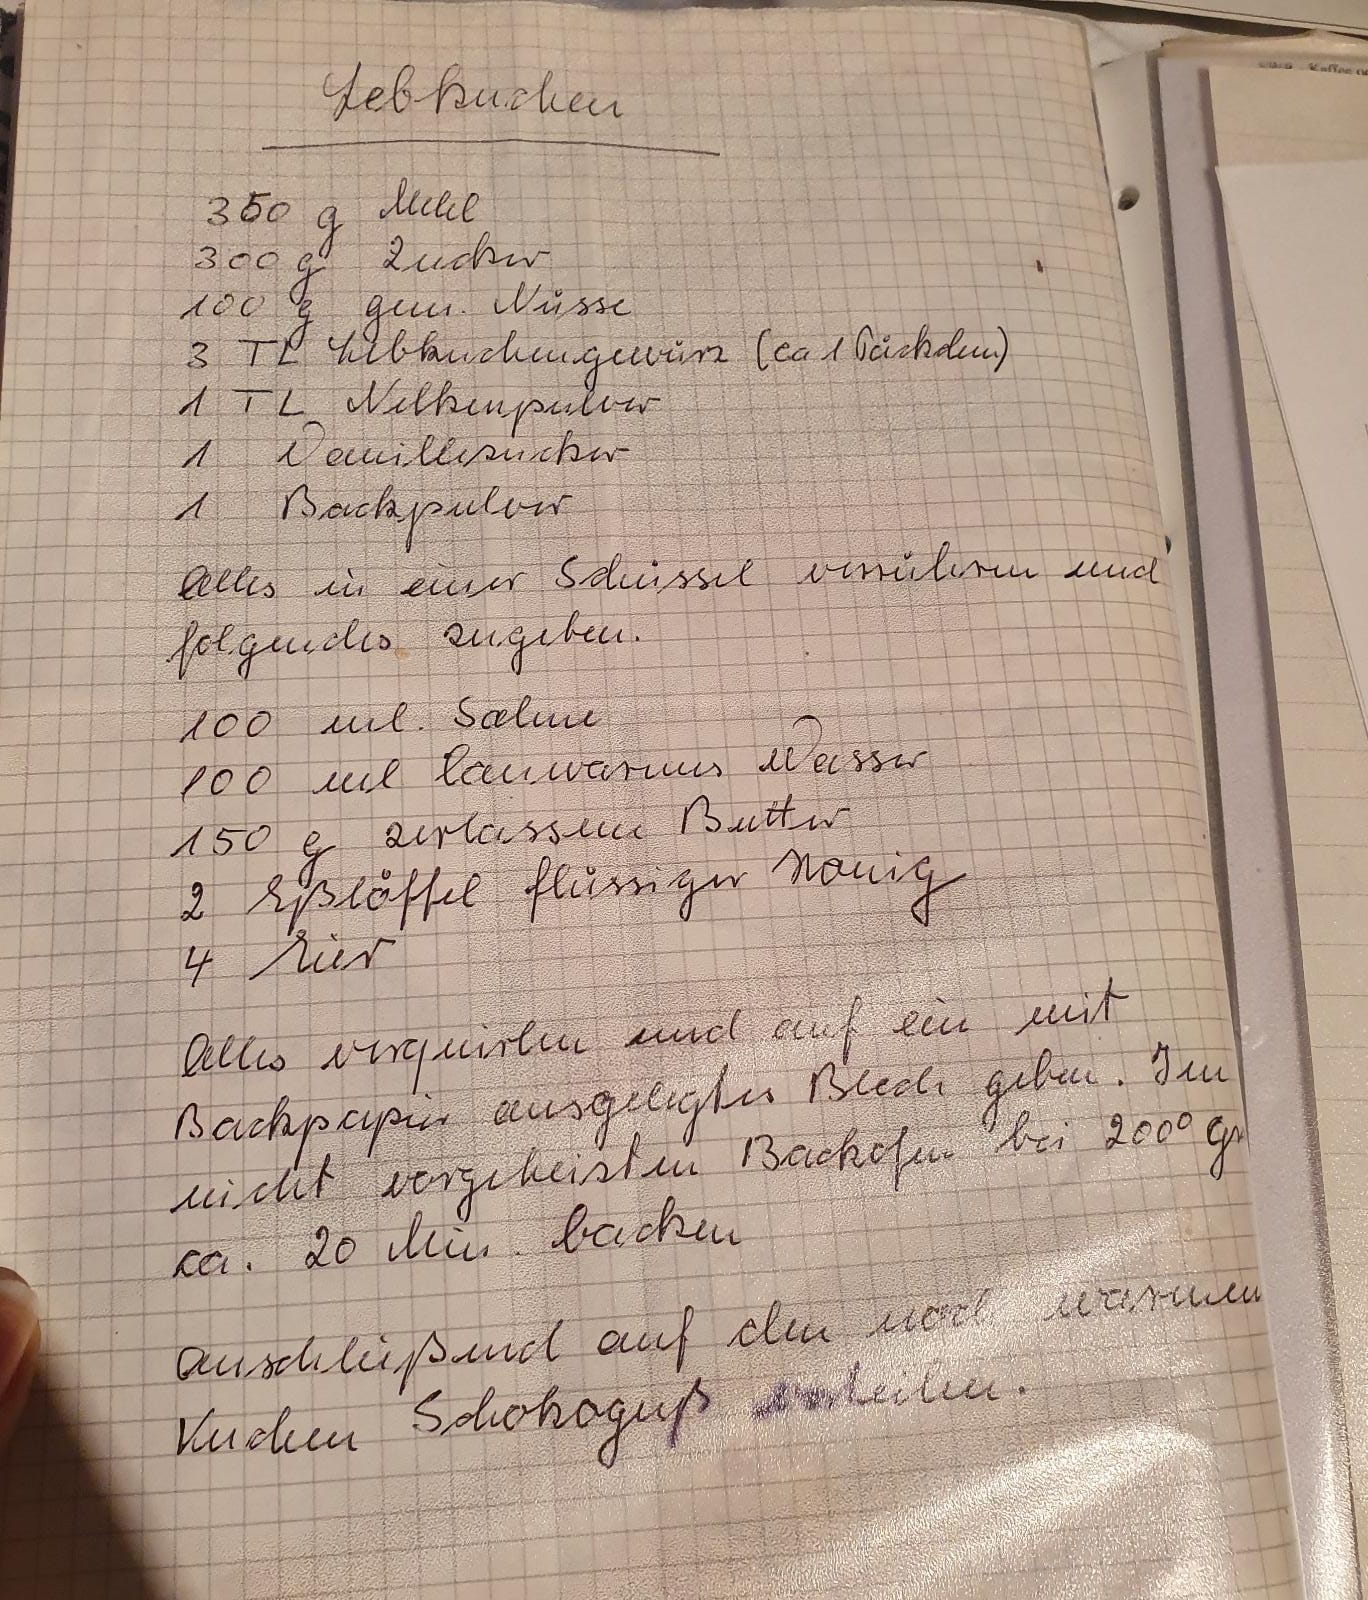 Lebkuchen
350 g Mehl
300 g Zucker
100 g gem. Nüsse
3 TL Lebkuchengewürz (ca 1 Päckchen)
1 TL Nelkenpulver
1 Vanillezucker
1 Backpulver
Alles in einer Schüssel verrühren und
folgendes zugeben.
100 ml. Sahne
100 ml lauwarmes Wasser
150 g zerlassene Butter
2 Eßlöffel flüssiger Honig
4 Eier
Alles verquirlen und auf ein mit
Backpapier ausgelegtes Blech geben. Im
nicht vorgeheizten Backofen bei 200° Gr
ca. 20 Min. backen
anschließend auf den noch warmen
Kuchen Schokoguß verteilen.